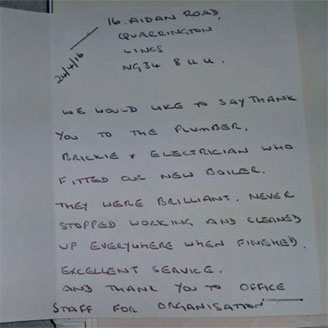 16. AIDAN ROAD,
QUARRINGTON
LINCS
NG34 8UU.
24/4/16
WE WOULD LIKE TO SAY THANK
YOU TO THE PLUMBER,
BRICKIE & ELECTRICIAN WHO
FITTED OUR NEW BOILER.
THEY WERE BRILLIANT. NEVER
STOPPED WORKING AND CLEANED
UP EVERYWHERE WHEN FINISHED.
EXCELLENT SERVICE.
AND THANK YOU TO OFFICE
STAFF FOR ORGANISATION